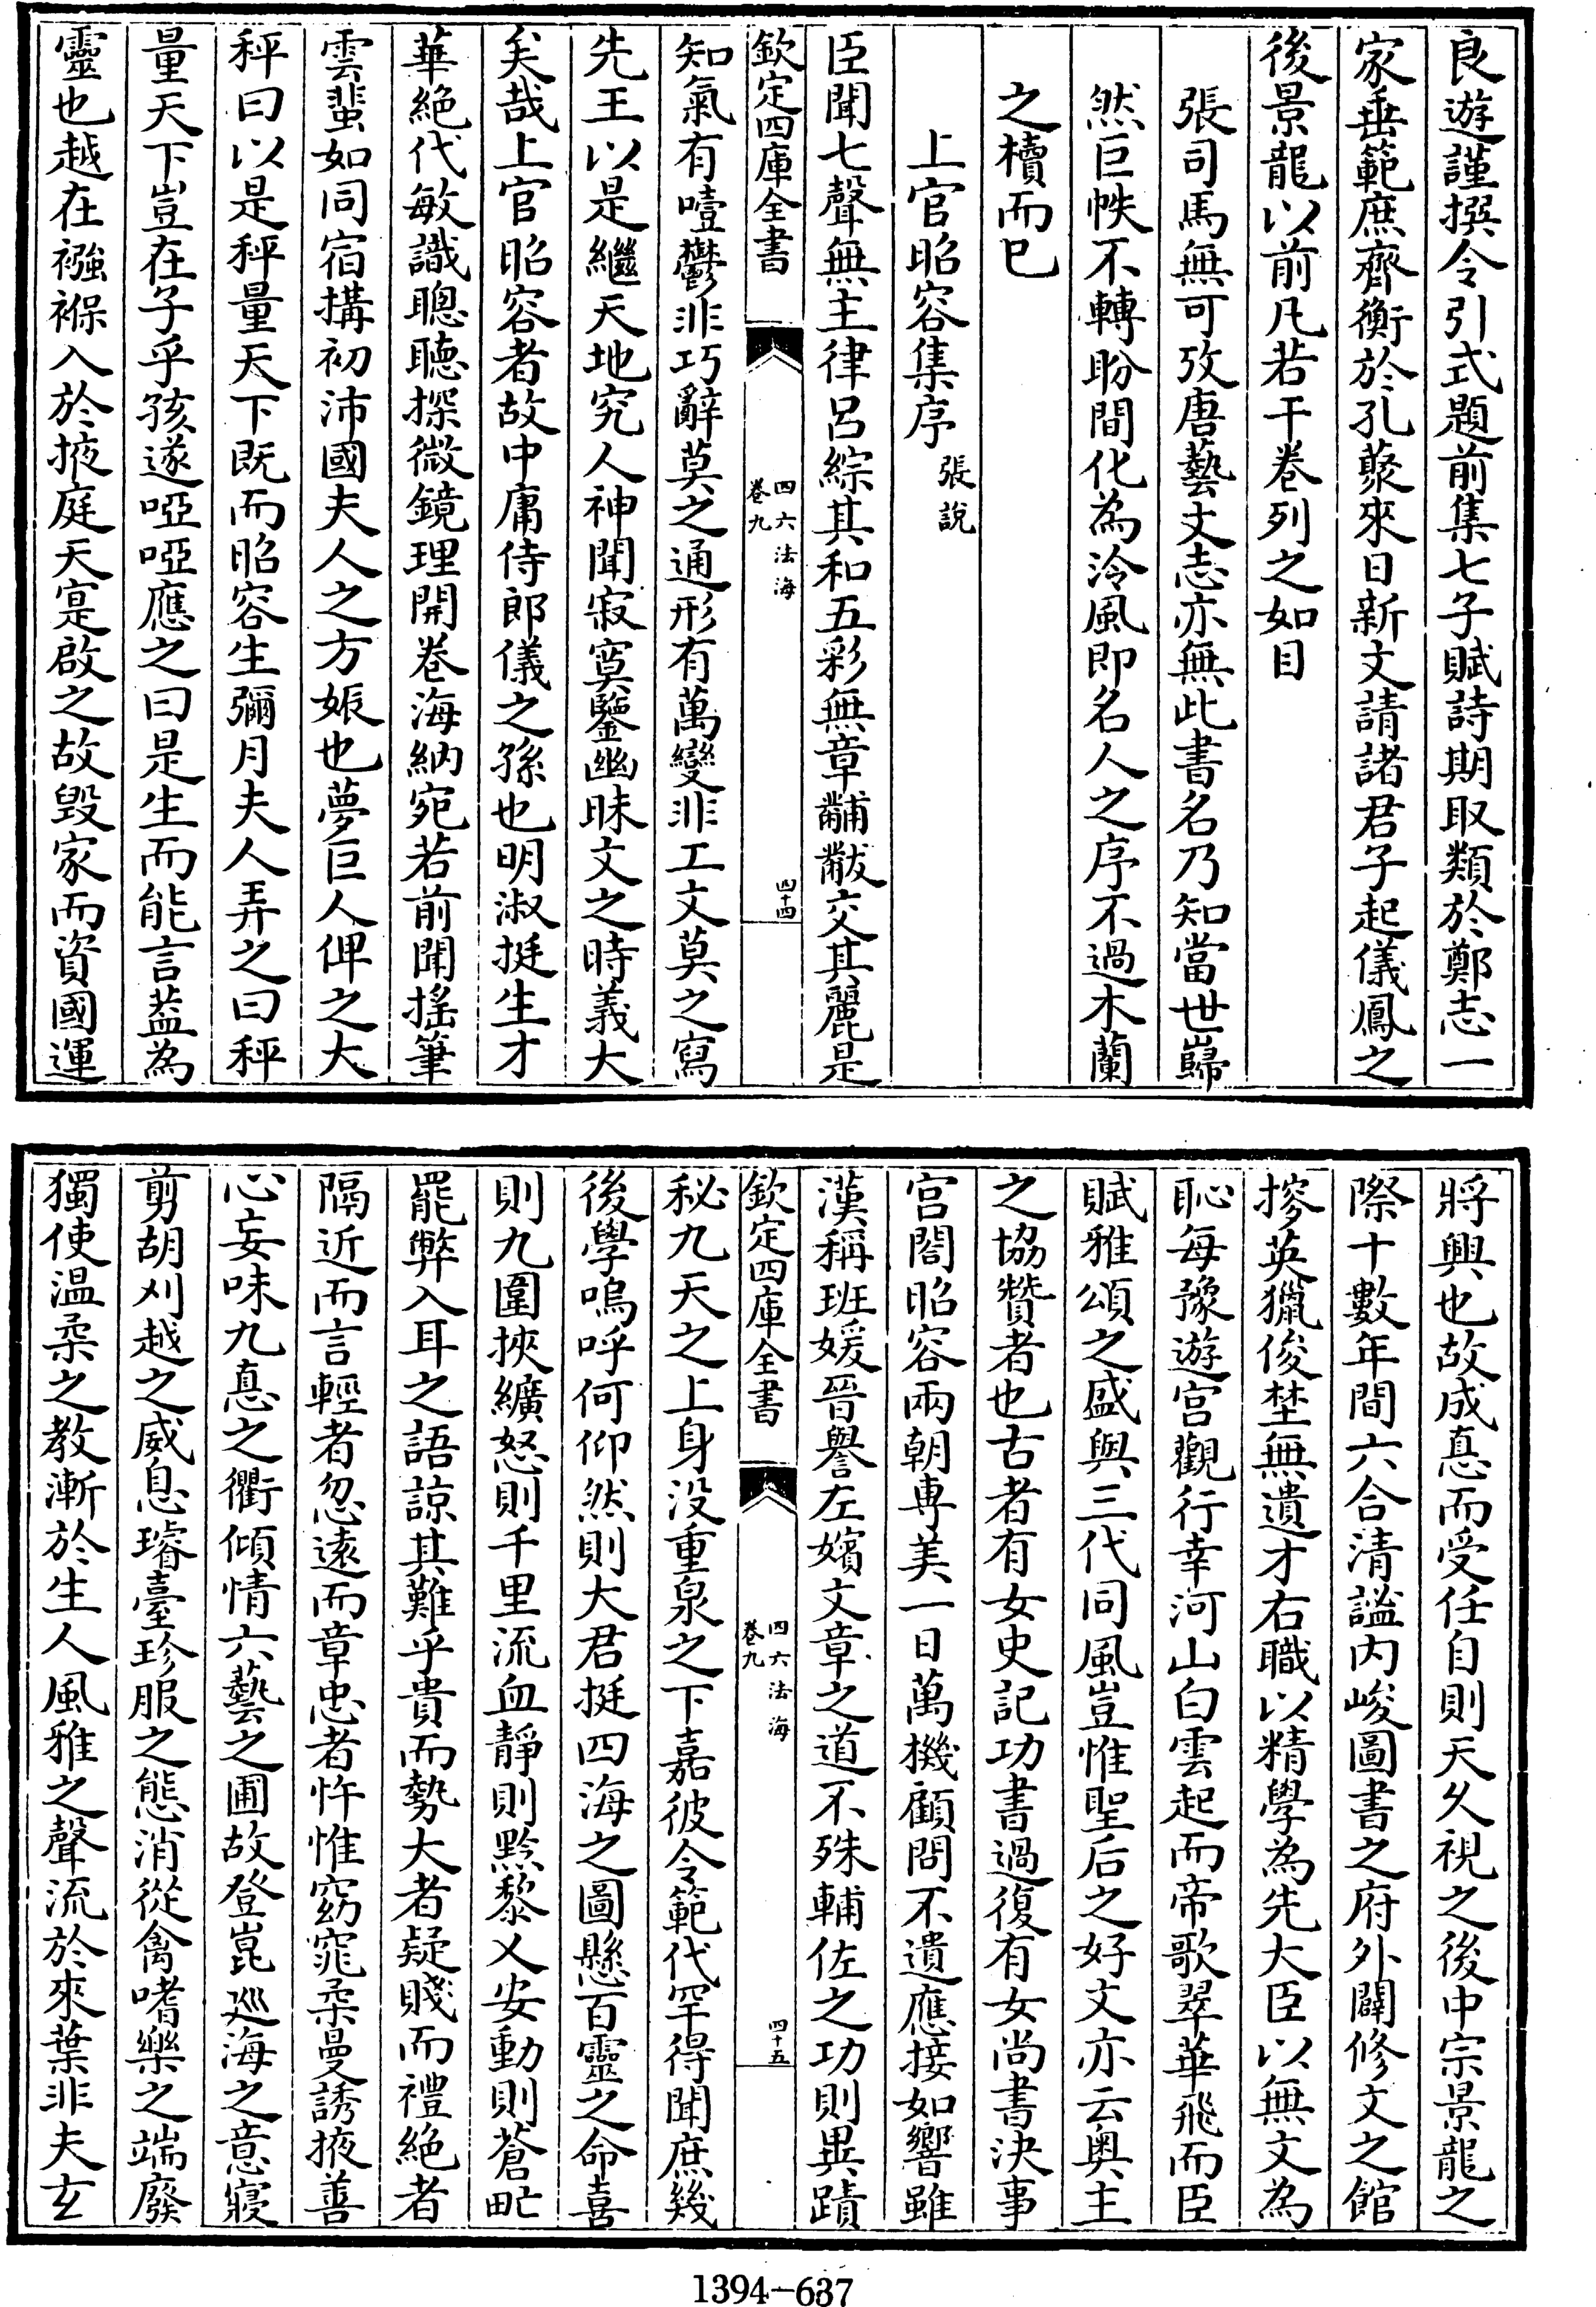 良遊謹撰令引式題前集七子賦詩期取類於鄭志一
家垂範庶齊衡於孔藂來日新文請諸君子起儀鳳之
後景龍以前凡若干卷列之如目
張司馬無可攷唐藝文志亦無此書名乃知當世巋
然巨帙不轉盼間化為泠風即名人之序不過木蘭
之櫝而已
上官昭容集序
張說
臣聞七聲無主律呂綜其和五彩無章黼黻交其麗是
欽定四庫全書
四六法海
卷九
四十四
知氣有噎鬱非巧辭莫之通形有萬變非工文莫之寫
先王以是繼天地究人神聞寂寞鑒幽昧文之時義大
矣哉上官昭容者故中庸侍郎儀之孫也明淑挺生才
華絕代敏識聰聽探微鏡理開卷海納宛若前聞搖筆
雲蜚如同宿搆初沛國夫人之方娠也夢巨人俾之大
秤曰以是秤量天下既而昭容生彌月夫人弄之曰秤
量天下豈在子乎孩遂啞啞應之曰是生而能言葢為
靈也越在襁褓入於掖庭天寔啟之故毀家而資國運
將興也故成悳而受任自則天久視之後中宗景龍之
際十數年間六合清謐内峻圖書之府外闢修文之館
摉英獵俊埜無遺才右職以精學為先大臣以無文為
恥每豫遊宫觀行幸河山白雲起而帝歌翠華飛而臣
賦雅頌之盛與三代同風豈惟聖后之好文亦云奥主
之協贊者也古者有女史記功書過復有女尚書決事
宫閤昭容兩朝專美一日萬機顧問不遺應接如響雖
漢稱班媛晉譽左嬪文章之道不殊輔佐之功則異蹟
欽定四庫全書
四六法海
卷九
四十五
秘九天之上身没重泉之下嘉彼令範代罕得聞庶幾
後學嗚呼何仰然則大君挺四海之圖懸百靈之命喜
則九圍挾纊怒則千里流血靜則黔黎乂安動則蒼甿
罷弊入耳之語諒其難乎貴而勢大者疑賤而禮絕者
隔近而言輕者忽遠而章忠者忤惟窈窕柔曼誘掖善
心妄味九悳之衢傾情六藝之圃故登崑廵海之意寢
剪胡刈越之威息璿臺珍服之態消從禽嗜樂之端廢
獨使温柔之教漸於生人風雅之聲流於來葉非夫玄
1394-637